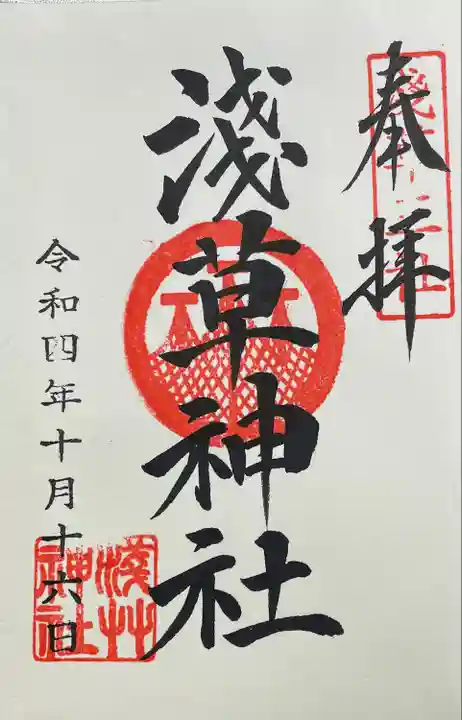 奉拝
淺草神社
令和四年十月十六日
淺草
神社